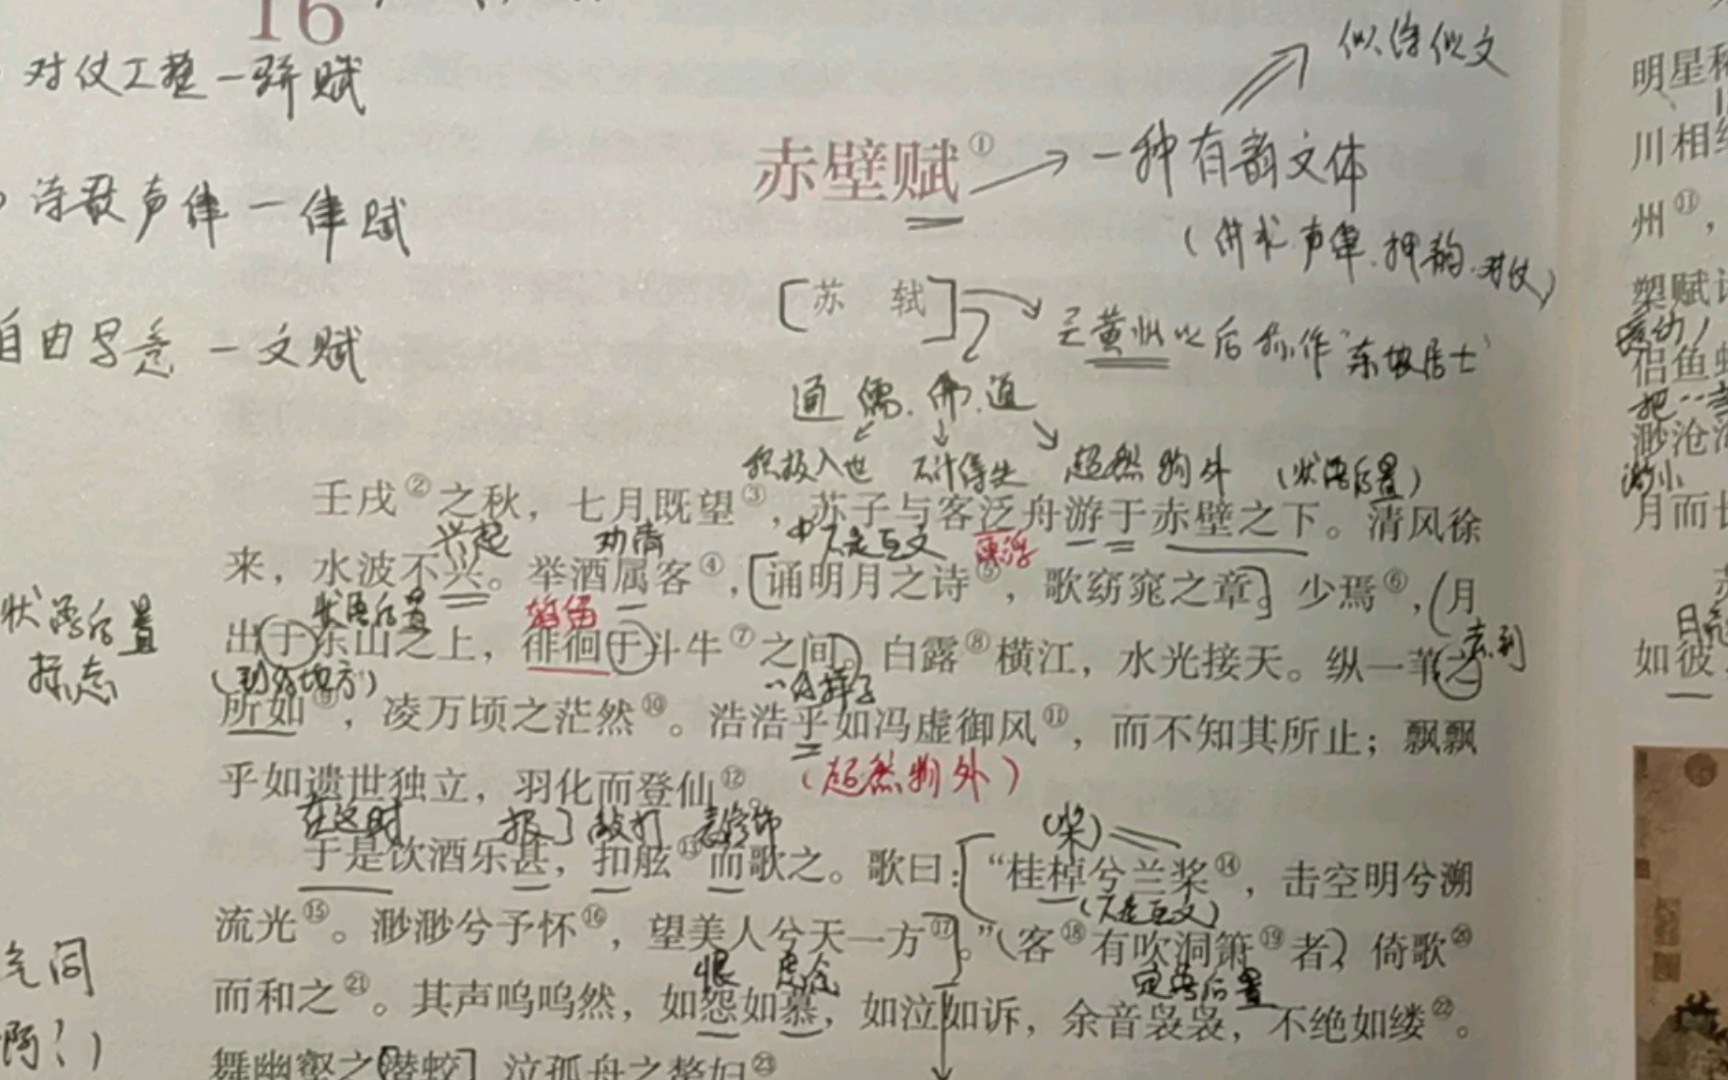 16
对仗工整一骈赋
似诗似文
赤壁赋① 一种有韵文体
诗歌声律一律赋
(讲求声律.押韵.对仗)
[苏 轼]
黄州以后称作"东坡居士"
自由写意一文赋
通儒.佛.道
积极入世 不计得失 超然物外 (状语后置)
壬戌②之秋，七月既望③，苏子与客泛舟游于赤壁之下。清风徐
兴起 劝请 不是互文
来，水波不兴。举酒属客④，[诵明月之诗⑤，歌窈窕之章]。少焉⑥，(月
状语后置
状语后置
标志
出于东山之上，徘徊于斗牛⑦之间。)白露⑧横江，水光接天。纵一苇之
(到的地方) ··的样子
所如⑨，凌万顷之茫然⑩。浩浩乎如冯虚御风⑪，而不知其所止；飘飘
乎如遗世独立，羽化而登仙⑫。
(超然物外)
在这时 敲打 表修饰 (桨)
于是饮酒乐甚，扣舷⑬而歌之。歌曰：["桂棹兮兰桨⑭，击空明兮溯
(不是互文)
流光⑮。渺渺兮予怀⑯，望美人兮天一方⑰]。"(客⑱有吹洞箫⑲者)，倚歌⑳
恨 定语后置
而和之㉑。其声呜呜然，如怨如慕，如泣如诉，余音袅袅，不绝如缕㉒。
舞幽壑之[潜蛟]，泣孤舟之嫠妇㉓
明星稀
川相缪
州⑪，
槊赋诗
侣鱼虾
渺沧海
渺小
月而长
如彼